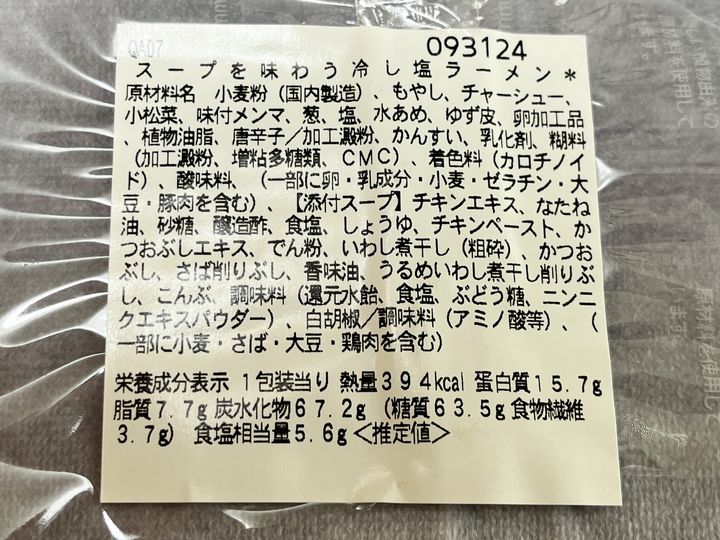 QA07
093124
スープを味わう冷し塩ラーメン*
原材料名 小麦粉(国内製造)、もやし、チャーシュー、
小松菜、味付メンマ、葱、塩、水あめ、ゆず皮、卵加工品
、植物油脂、唐辛子/加工澱粉、かんすい、乳化剤、糊料
(加工澱粉、増粘多糖類、CMC)、着色料(カロチノイ
ド)、酸味料、(一部に卵・乳成分・小麦・ゼラチン・大
豆・豚肉を含む)、【添付スープ】チキンエキス、なたね
油、砂糖、醸造酢、食塩、しょうゆ、チキンペースト、か
つおぶしエキス、でん粉、いわし煮干し(粗砕)、かつお
ぶし、さば削りぶし、香味油、うるめいわし煮干し削りぶ
し、こんぶ、調味料(還元水飴、食塩、ぶどう糖、ニンニ
クエキスパウダー)、白胡椒/調味料(アミノ酸等)、(
一部に小麦・さば・大豆・鶏肉を含む)
栄養成分表示 1包装当り 熱量394kcal 蛋白質15.7g
脂質7.7g 炭水化物67.2g (糖質63.5g 食物繊維
3.7g) 食塩相当量5.6g <推定値>